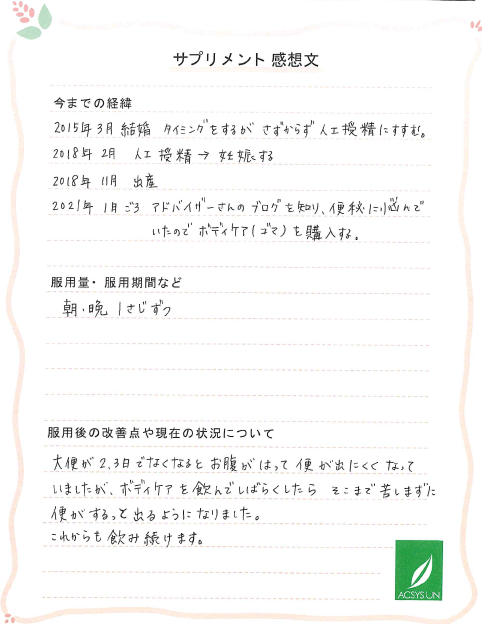 サプリメント 感想文
今までの経緯
2015年3月 結婚 タイミングをするが さずからず 人工授精にすすむ。
2018年 2月 人工 授精 → 妊娠する
2018年 11月 出産
2021年 1月ごろ アドバイザーさんのブログを知り、便秘に悩んで
いたので ボディケア(ゴマ)を購入する。
服用量・服用期間など
朝・晩 1さじずつ
服用後の改善点や現在の状況について
大便が2、3日でなくなると お腹が はって 便が出にくくなって
いましたが、ボディケアを飲んでしばらくしたら そこまで苦しまずに
便がするっと出るようになりました。
これからも飲み続けます。
ACSYSUN